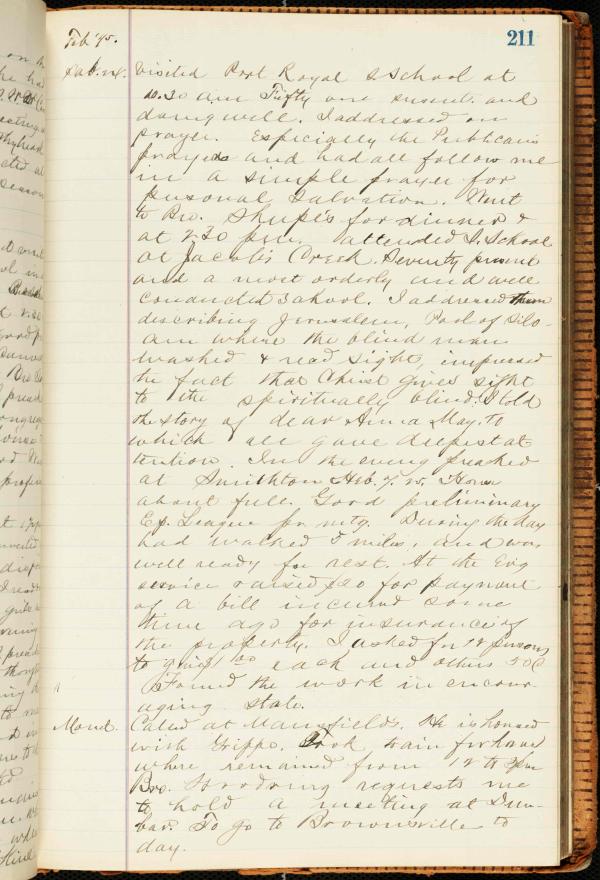 211
Feb '95.
Sab. visited Port Royal S School at
10.30 am Fifty one present. and
doing well. I addressed on
prayer. Especially the Publicans
prayer and had all follow me
in a simple prayer for
personal salvation. Went
to Bro. Shupe's for dinner &
at 2 30 pm. attended S. School
at Jacobs Creek. Seventy present
and a most orderly and well
conducted School. I addressed them
describing Jerusalem, Pool of Silo-
am where the blind man
washed & recd sight, impressed
the fact that Christ gives sight
to the spiritually blind. I told
the story of dear Anna May. to
which all gave deepest at
tention. In the eveng preached
at Smithton Heb. 7. 25. House
about full. Good preliminary
Ep. League pr mtg. During the day
had walked 5 miles, and was
well ready for rest. At the Evg
service raised $20 for payment
of a bill incured some
time ago for insurance of
the property. I asked for 12 persons
to give 1 00 each and others 50c
Found the work in encour-
aging state.
Mond. Called at Mansfields. He is housed
with Grippe. Took train for home
where remained from 12 to 3 pm
Bro. requests me
to hold a meeting at Dun-
bar. To go to Brownsville to
day.